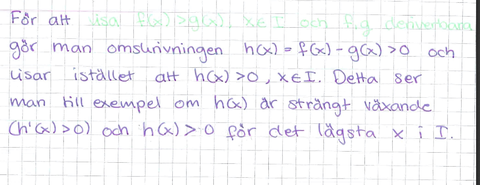 För att visa f(x)>g(x), x∈I och f,g deriverbara
gör man omskrivningen h(x) = f(x) - g(x) > 0 och
visar istället att h(x) > 0, x∈I. Detta ser
man till exempel om h(x) är strängt växande
(h'(x) > 0) och h(x) > 0 för det lägsta x i I.